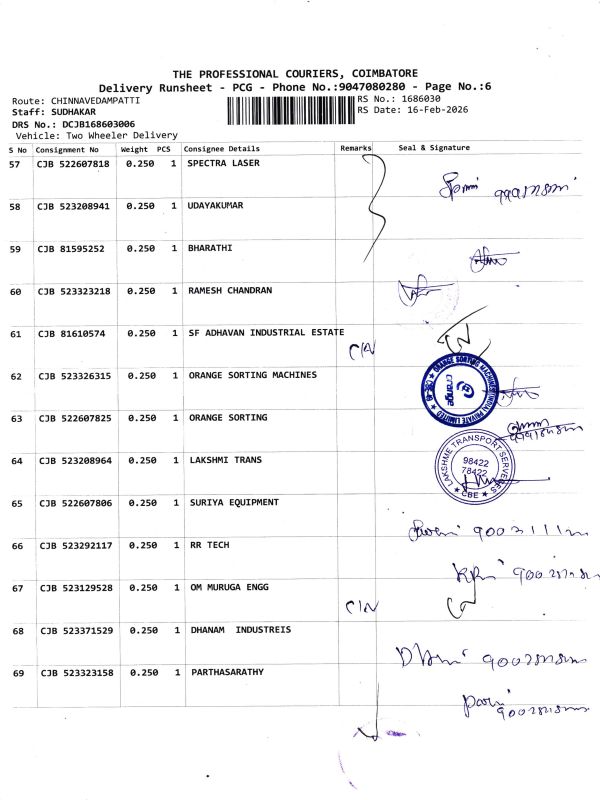 THE PROFESSIONAL COURIERS, COIMBATORE
Delivery Runsheet - PCG - Phone No.:9047080280 - Page No.:6
Route: CHINNAVEDAMPATTI RS No.: 1686030
Staff: SUDHAKAR RS Date: 16-Feb-2026
DRS No.: DCJB168603006
Vehicle: Two Wheeler Delivery
S No Consignment No Weight PCS Consignee Details Remarks Seal & Signature
57 CJB 522607818 0.250 1 SPECTRA LASER
58 CJB 523208941 0.250 1 UDAYAKUMAR
59 CJB 81595252 0.250 1 BHARATHI
60 CJB 523323218 0.250 1 RAMESH CHANDRAN
61 CJB 81610574 0.250 1 SF ADHAVAN INDUSTRIAL ESTATE
C/N
62 CJB 523326315 0.250 1 ORANGE SORTING MACHINES
ORANGE SORTING MACHINES (INDIA) PRIVATE LIMITED
orange
63 CJB 522607825 0.250 1 ORANGE SORTING
64 CJB 523208964 0.250 1 LAKSHMI TRANS
LAKSHME TRANSPORT SERVICES
98422
78422
CBE
65 CJB 522607806 0.250 1 SURIYA EQUIPMENT
66 CJB 523292117 0.250 1 RR TECH
67 CJB 523129528 0.250 1 OM MURUGA ENGG
C/N
68 CJB 523371529 0.250 1 DHANAM INDUSTREIS
69 CJB 523323158 0.250 1 PARTHASARATHY